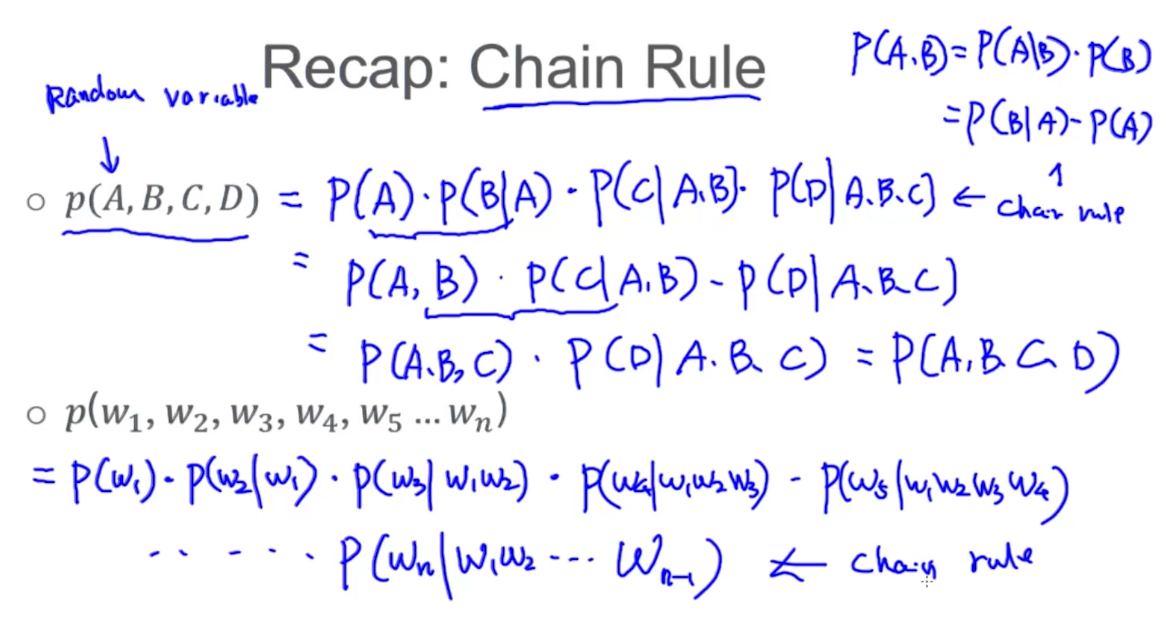 Recap: Chain Rule
P(A.B)=P(A|B)·P(B)
=P(B|A)-P(A)
↑
chain rule
Random variable
↓
○ p(A, B, C, D) = P(A)·P(B|A)·P(C|A.B)·P(D|A.B.C) ←
= P(A, B)·P(C|A.B)-P(D|A.B.C)
= P(A.B,C)·P(D|A.B.C) = P(A,B.C.D)
○ p(w₁, w₂, w₃, w₄, w₅ … wₙ)
= P(w₁)·P(w₂|w₁)·P(w₃|w₁w₂)·P(w₄|w₁w₂w₃)-P(w₅|w₁w₂w₃w₄)
······P(wₙ|w₁w₂---wₙ₋₁) ← chain rule